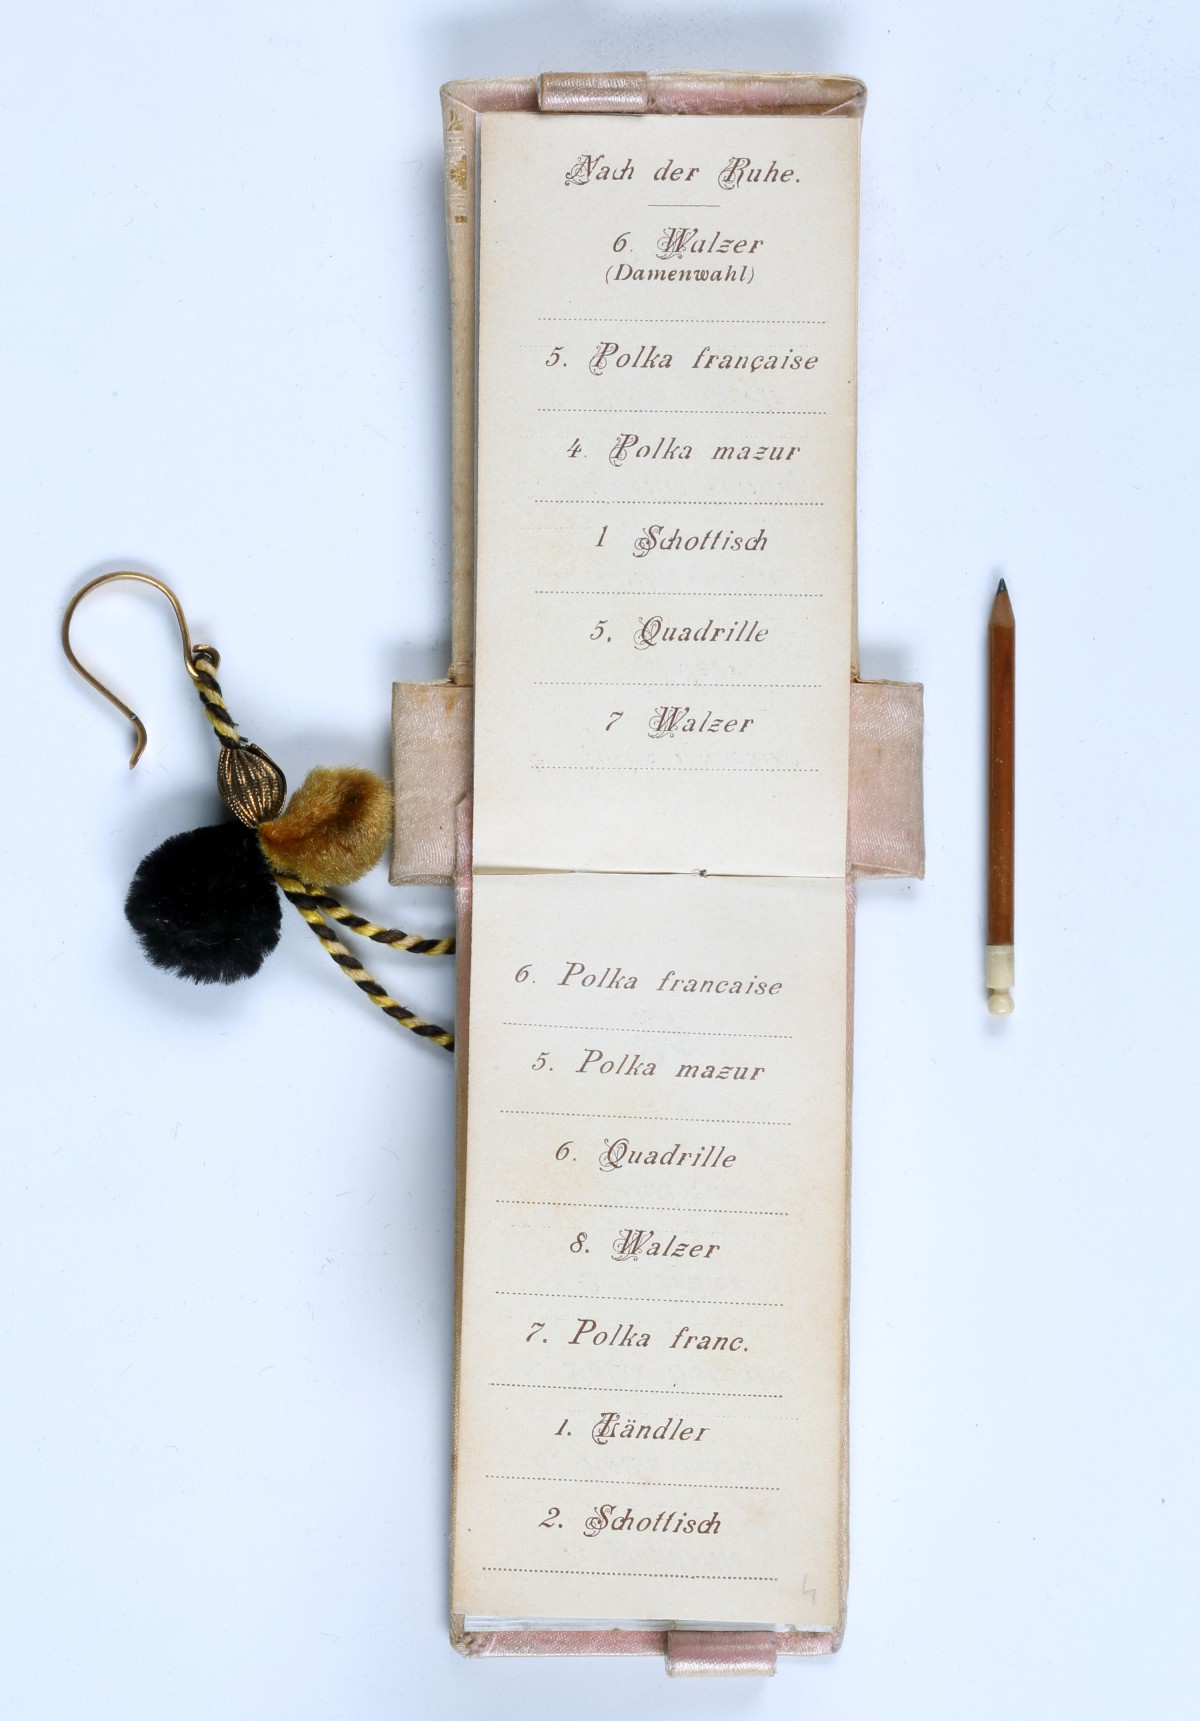 Nach der Ruhe.
6. Walzer
(Damenwahl)
5. Polka française
4. Polka mazur
1 Schottisch
5. Quadrille
7 Walzer
6. Polka francaise
5. Polka mazur
6. Quadrille
8. Walzer
7. Polka franc.
1. Ländler
2. Schottisch
4